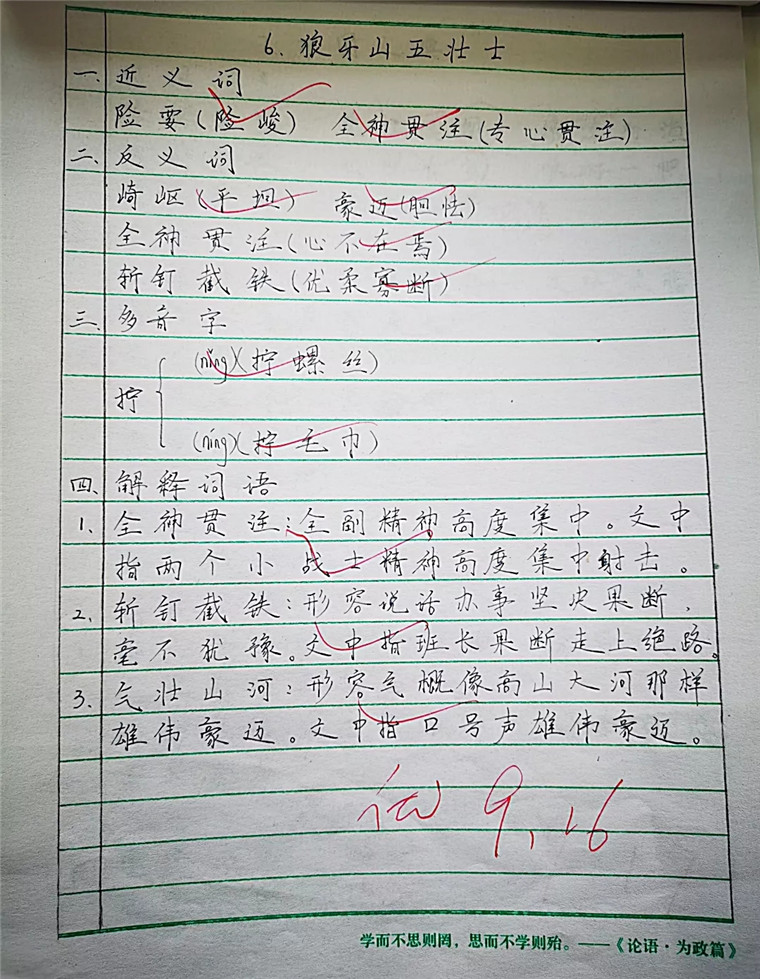 6. 狼牙山五壮士
一、近义词
险要(险峻) 全神贯注(专心贯注)
二、反义词
崎岖(平坦) 豪迈(胆怯)
全神贯注(心不在焉)
斩钉截铁(优柔寡断)
三、多音字
(nǐng)(拧螺丝)
拧
(níng)(拧毛巾)
四、解释词语
1. 全神贯注:全副精神高度集中。文中
指两个小战士精神高度集中射击。
2. 斩钉截铁:形容说话办事坚决果断,
毫不犹豫。文中指班长果断走上绝路。
3. 气壮山河:形容气概像高山大河那样
雄伟豪迈。文中指口号声雄伟豪迈。
优 9.16
学而不思则罔,思而不学则殆。——《论语·为政篇》